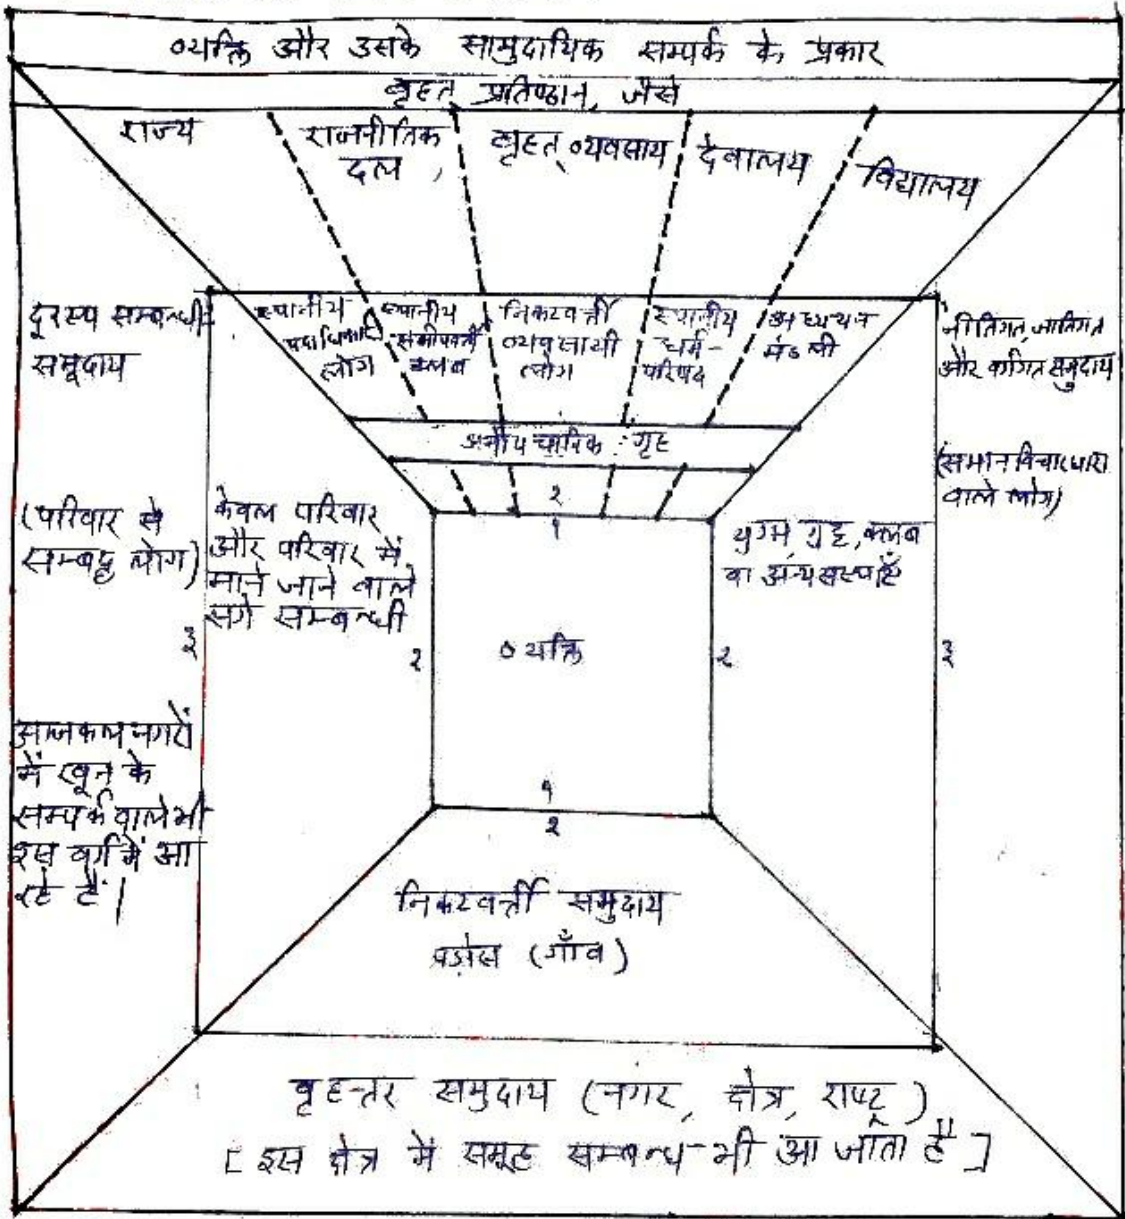 व्यक्ति और उसके सामुदायिक सम्पर्क के प्रकार
वृहत् प्रतिष्ठान, जैसे
राज्य
राजनीतिक
दल,
वृहत् व्यवसाय
देवालय
विद्यालय
दूरस्थ सम्बन्धी
समूदाय
स्थानीय
पदाधिकारी
लोग
स्थानीय
समीपवर्ती
क्लब
निकटवर्ती
व्यवसायी
लोग
स्थानीय
धर्म-
परिषद
अध्ययन
मंडली
नीतिगत, जातिगत
और वर्गगत समुदाय
अनौपचारिक : गृह
(समान विचारधारा
वाले लोग)
२
१
(परिवार से
सम्बद्ध लोग)
केवल परिवार
और परिवार में
माने जाने वाले
सगे सम्बन्धी
युग्म गृह, क्लब
वा अन्य संस्थाएँ
३
२
व्यक्ति
२
३
आजकल नगरों
में खून के
सम्पर्क वाले भी
इस वर्ग में आ
रहे हैं |
१
२
निकटवर्ती समुदाय
पड़ोस (गाँव)
वृहत्तर समुदाय (नगर, क्षेत्र, राष्ट्र)
[इस क्षेत्र में समूह सम्बन्ध भी आ जाता है]